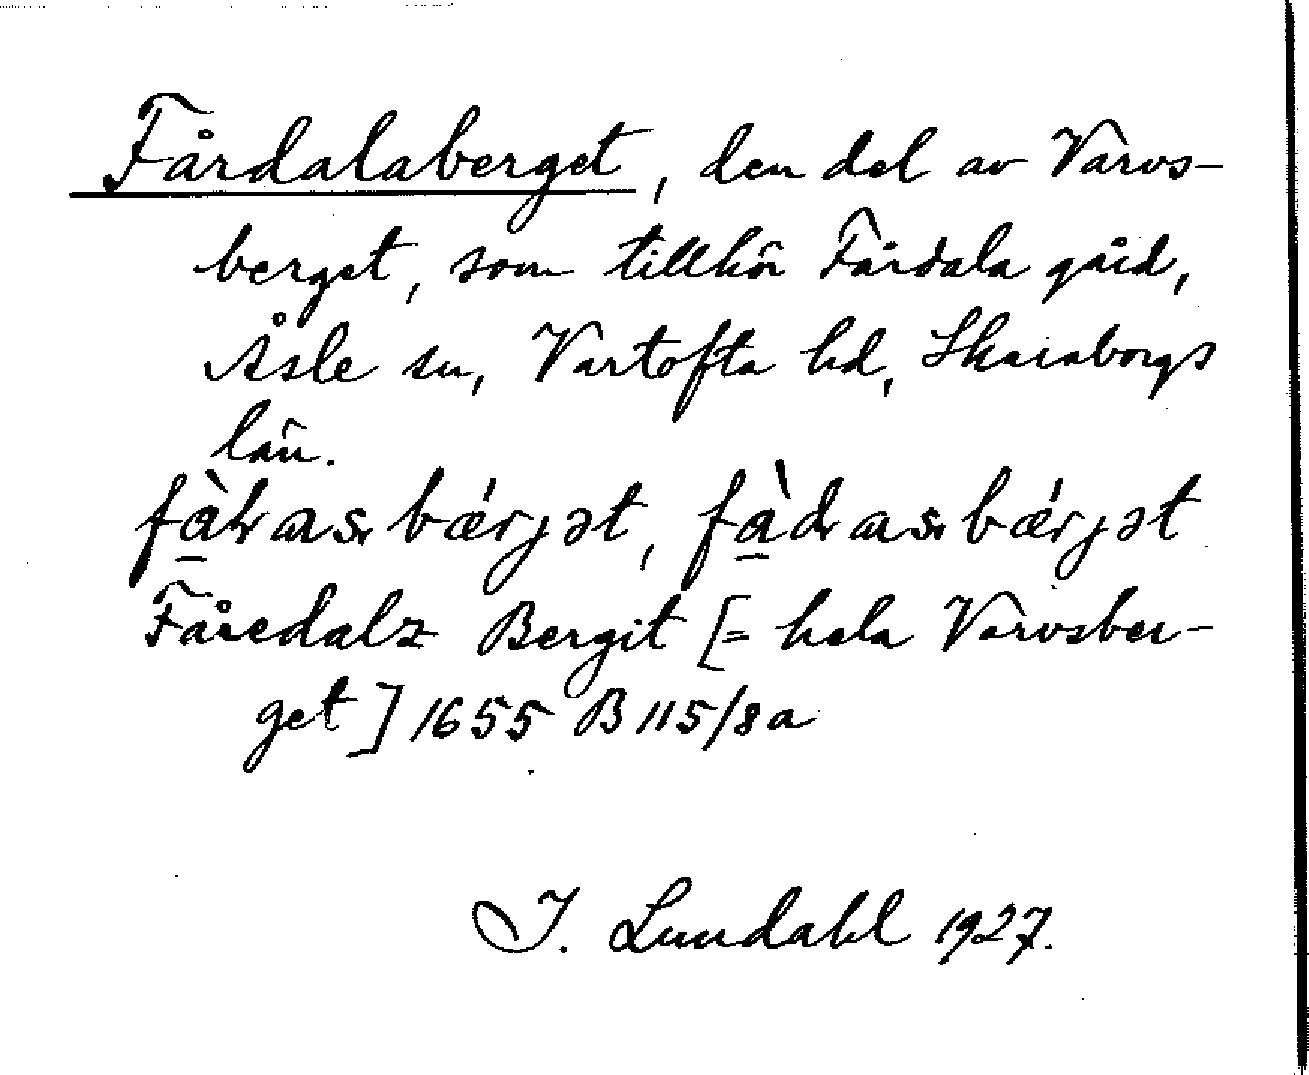 Fårdalaberget, den del av Varvs-
berget, som tillhör Fårdala gård,
Åsle sn, Vartofta hd, Skaraborgs
län.
bǽrjət, bǽrjət
Fåredalz Bergit [= hela Varvsber-
get] 1655 B 115/8a
I. Lundahl 1927.